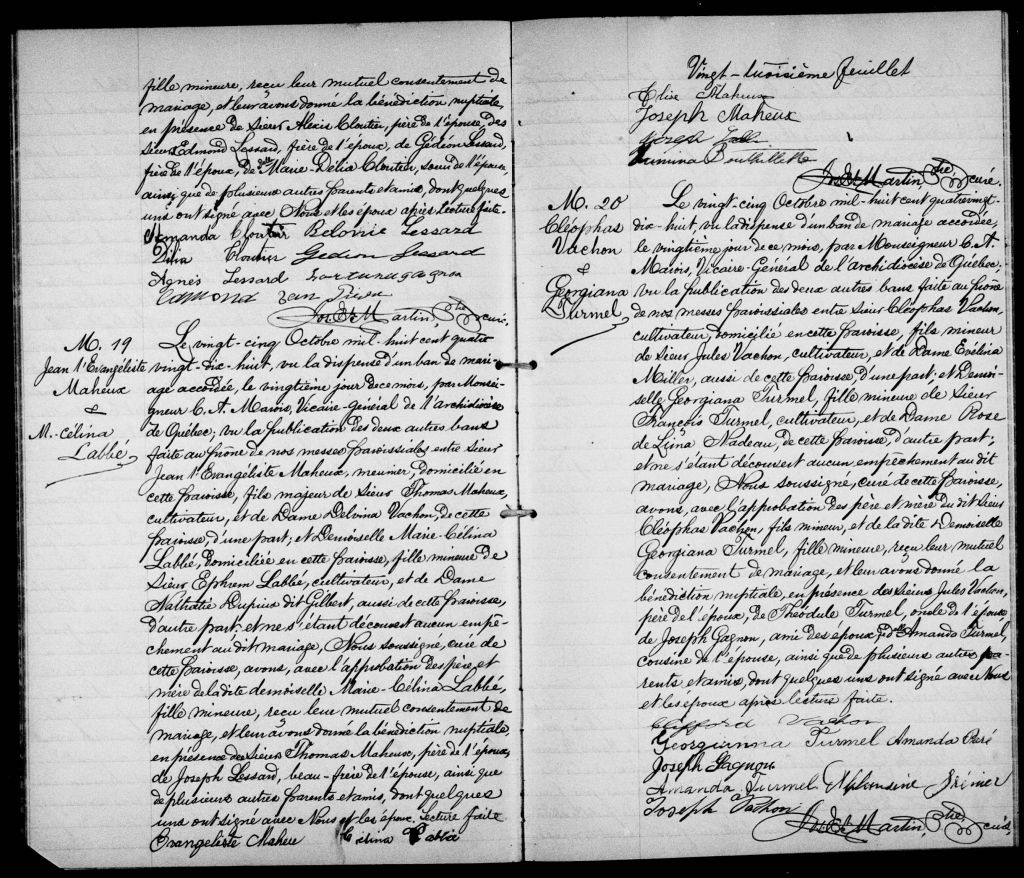 fille mineure, reçu leur mutuel consentement de
mariage, et leur avons donné la bénédiction nuptiale,
en présence de Sieur Alexis Cloutier, père de l'épouse, des
sieurs Edmond Lessard, frère de l'époux, de Gédéon Lessard,
frère de l'époux, de dlle Marie-Délia Cloutier, soeur de l'épouse,
ainsi que de plusieurs autres parents et amis, dont quelques
uns ont signé avec Nous et les époux après lecture faite.
Amanda Cloutier Belonie Lessard
Délia Cloutier Gedeon Lessard
Agnès Lessard Fortunat Gagnon
Edmond
Jos. E. Martin, Ptre curé.
M. 19
Jean l'Evangéliste
Maheux
&
M.-Célina
Labbé
Le vingt-cinq Octobre mil-huit cent quatre
vingt-dix-huit, vu la dispense d'un ban de mari-
age accordée, le vingtième jour de ce mois, par Monsei-
gneur C. A. Marois, Vicaire-Général de l'archidiocèse
de Québec; vu la publication des deux autres bans
faite au prône de nos messes paroissiales entre sieur
Jean l'Evangéliste Maheux, meunier, domicilié en
cette paroisse, fils majeur de Sieur Thomas Maheux,
cultivateur, et de Dame Delvina Vachon, de cette
paroisse, d'une part; et Demoiselle Marie-Célina
Labbé, domiciliée en cette paroisse, fille mineure de
Sieur Ephrem Labbé, cultivateur, et de Dame
Nathalie Dupuis dit Gilbert, aussi de cette paroisse,
d'autre part; et ne s'étant découvert aucun empê-
chement au dit mariage, Nous soussigné, curé de
cette paroisse, avons, avec l'approbation des père et
mère de la dite demoiselle Marie-Célina Labbé,
fille mineure, reçu leur mutuel consentement de
mariage, et leur avons donné la bénédiction nuptiale,
en présence des Sieurs Thomas Maheux, père de l'époux,
de Joseph Lessard, beau-frère de l'épouse, ainsi que
de plusieurs autres parents et amis, dont quelques
uns ont signé avec Nous et les époux. Lecture faite
Evangeliste Maheu Célina Labbé
Vingt-troisième feuillet
Elise Maheux
Joseph Maheux
Joseph
Bouthillette
Jos. E. Martin, Ptre curé.
M. 20
Cléophas
Vachon
&
Georgiana
Turmel
Le vingt-cinq Octobre mil-huit cent quatrevingt-
dix-huit, vu la dispense d'un ban de mariage accordée,
le vingtième jour de ce mois, par Monseigneur C. A.
Marois, Vicaire Général de l'archidiocèse de Québec;
vu la publication des deux autres bans faite au prône
de nos messes paroissiales entre sieur Cléophas Vachon,
cultivateur, domicilié en cette paroisse, fils mineur
de Sieur Jules Vachon, cultivateur, et de Dame Evélina
Miller, aussi de cette paroisse, d'une part; et Demoi-
selle Georgiana Turmel, fille mineure de Sieur
François Turmel, cultivateur, et de Dame Rose
de Lima Nadeau, de cette paroisse, d'autre part;
et ne s'étant découvert aucun empêchement au dit
mariage, Nous soussigné, curé de cette paroisse,
avons, avec l'approbation des père et mère du dit sieur
Cléophas Vachon, fils mineur, et de la dite Demoiselle
Georgiana Turmel, fille mineure, reçu leur mutuel
consentement de mariage, et leur avons donné la
bénédiction nuptiale, en présence des sieurs Jules Vachon,
père de l'époux, de Théodule Turmel, oncle de l'épouse,
de Joseph Gagnon, amie des époux, dlle Amanda Turmel,
cousine de l'épouse, ainsi que de plusieurs autres pa-
rents et amis, dont quelques uns ont signé avec Nous
et les époux après lecture faite.
Vachon
Georgianna Turmel Amanda
Joseph Gagnon
Amanda Turmel Alphonsine
Joseph Vachon
Jos. E. Martin, Ptre curé,